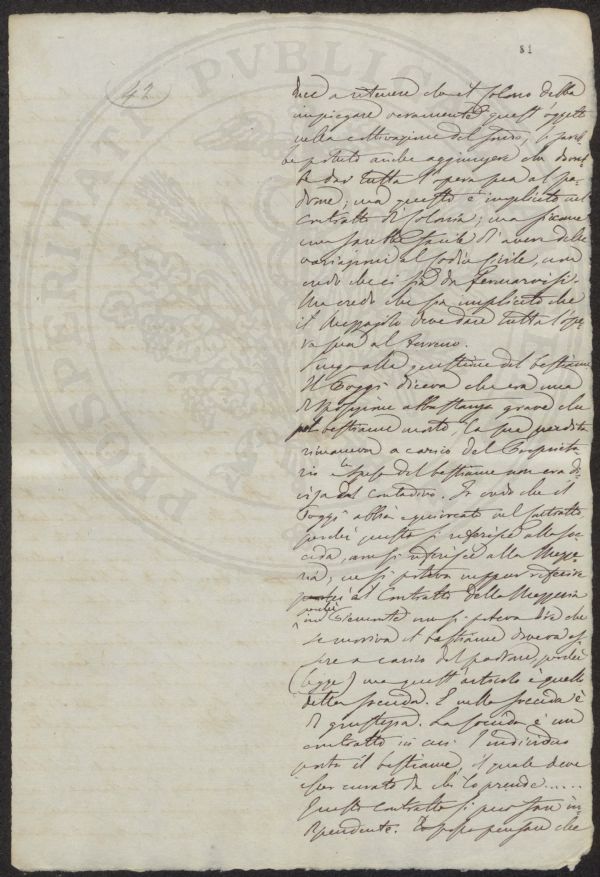 81
42
a ritenere che il Colono debba
impiegare veramente questi oggetti
nella coltivazione del fondo, si sareb-
be potuto anche aggiungere che dovreb-
be dar tutta l'opera sua al pa-
drone; ma questo è implicito nel
contratto di Colonia; ma siccome
una sarebbe facile d'avere delle
variazioni al Codice Civile, non
credo che ci sia da
Ma credo che sia implicito che
il Mezzajolo deve dare tutta l'ope-
ra sua al terreno.
alla questione del bestiame
Il Poggi diceva che era una
disposizione abbastanza grave che
pel bestiame morto, la sua perdita
rimaneva a carico del Proprieta-
rio la spesa del bestiame non era di-
visa dal contadino. Io credo che il
Poggi abbia equivocato nel
perché questo si riferisce alla soc-
cida, non si riferisce alla Mezze-
ria; ne si poteva neppur riferire
al Contratto della Mezzeria
perché
in Piemonte non si poteva dire che
se moriva il bestiame doveva es-
sere a carico del padrone, perché
(legge) ma quest'articolo è quello
della soccida. E nella soccida è
di giustizia. La soccida è un
contratto in cui l'individuo
porta il bestiame, il quale deve
esser curato da chi lo prende.....
Questo contratto si può fare in-
dipendente. pensare che
PROSPERITATI PUBLICAE